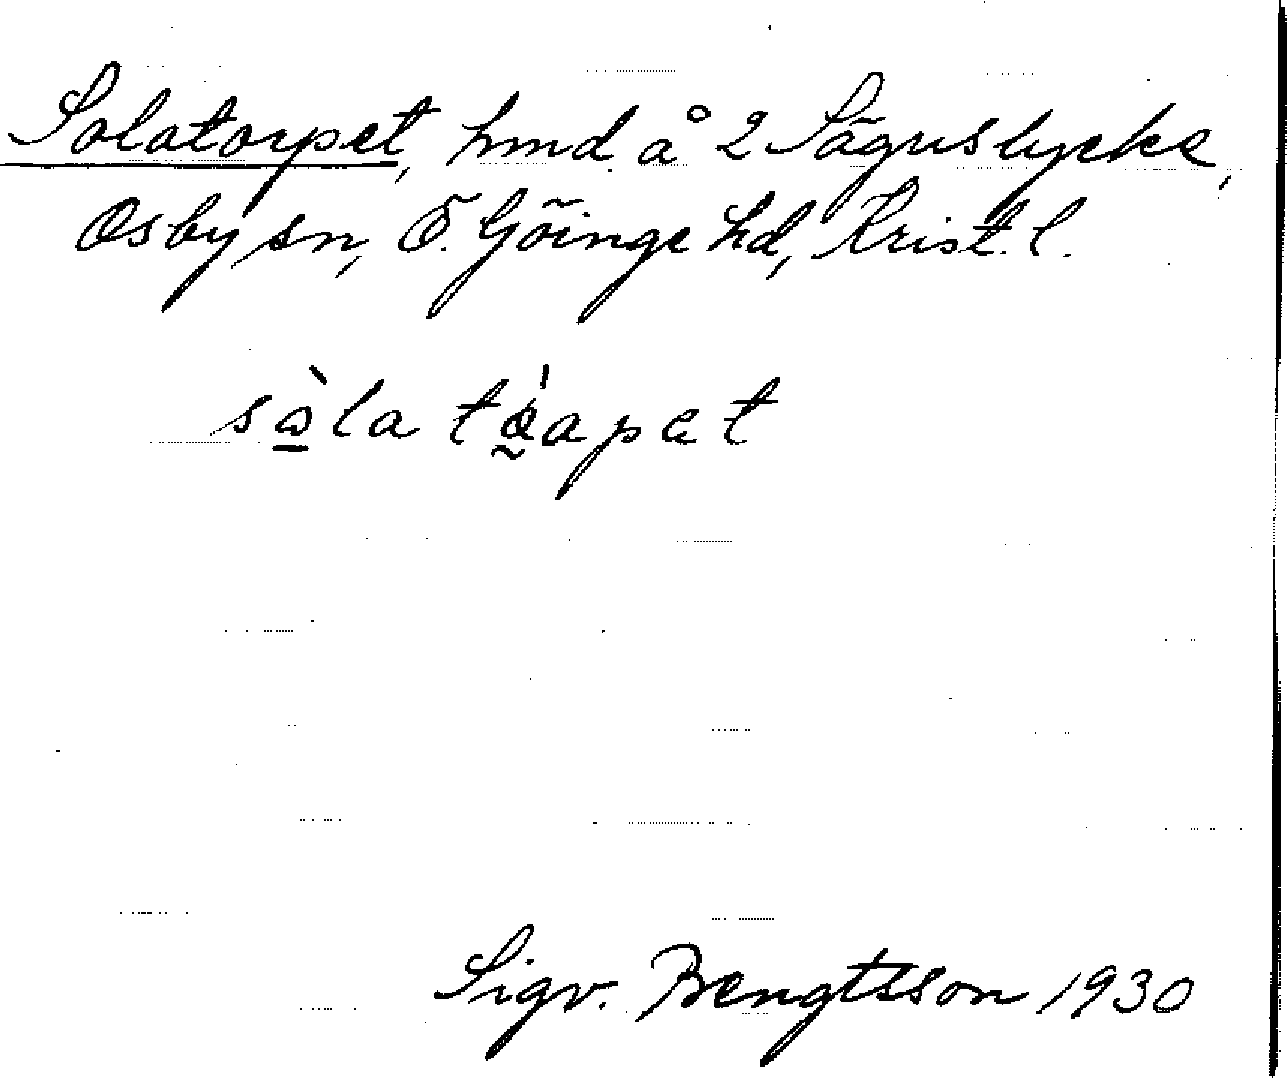 Solatorpet, hmd å 2 Sågmslycke,
Osby sn, Ö. Göinge hd, Krist. l.
sòla tápet
Sigv. Bengtsson 1930